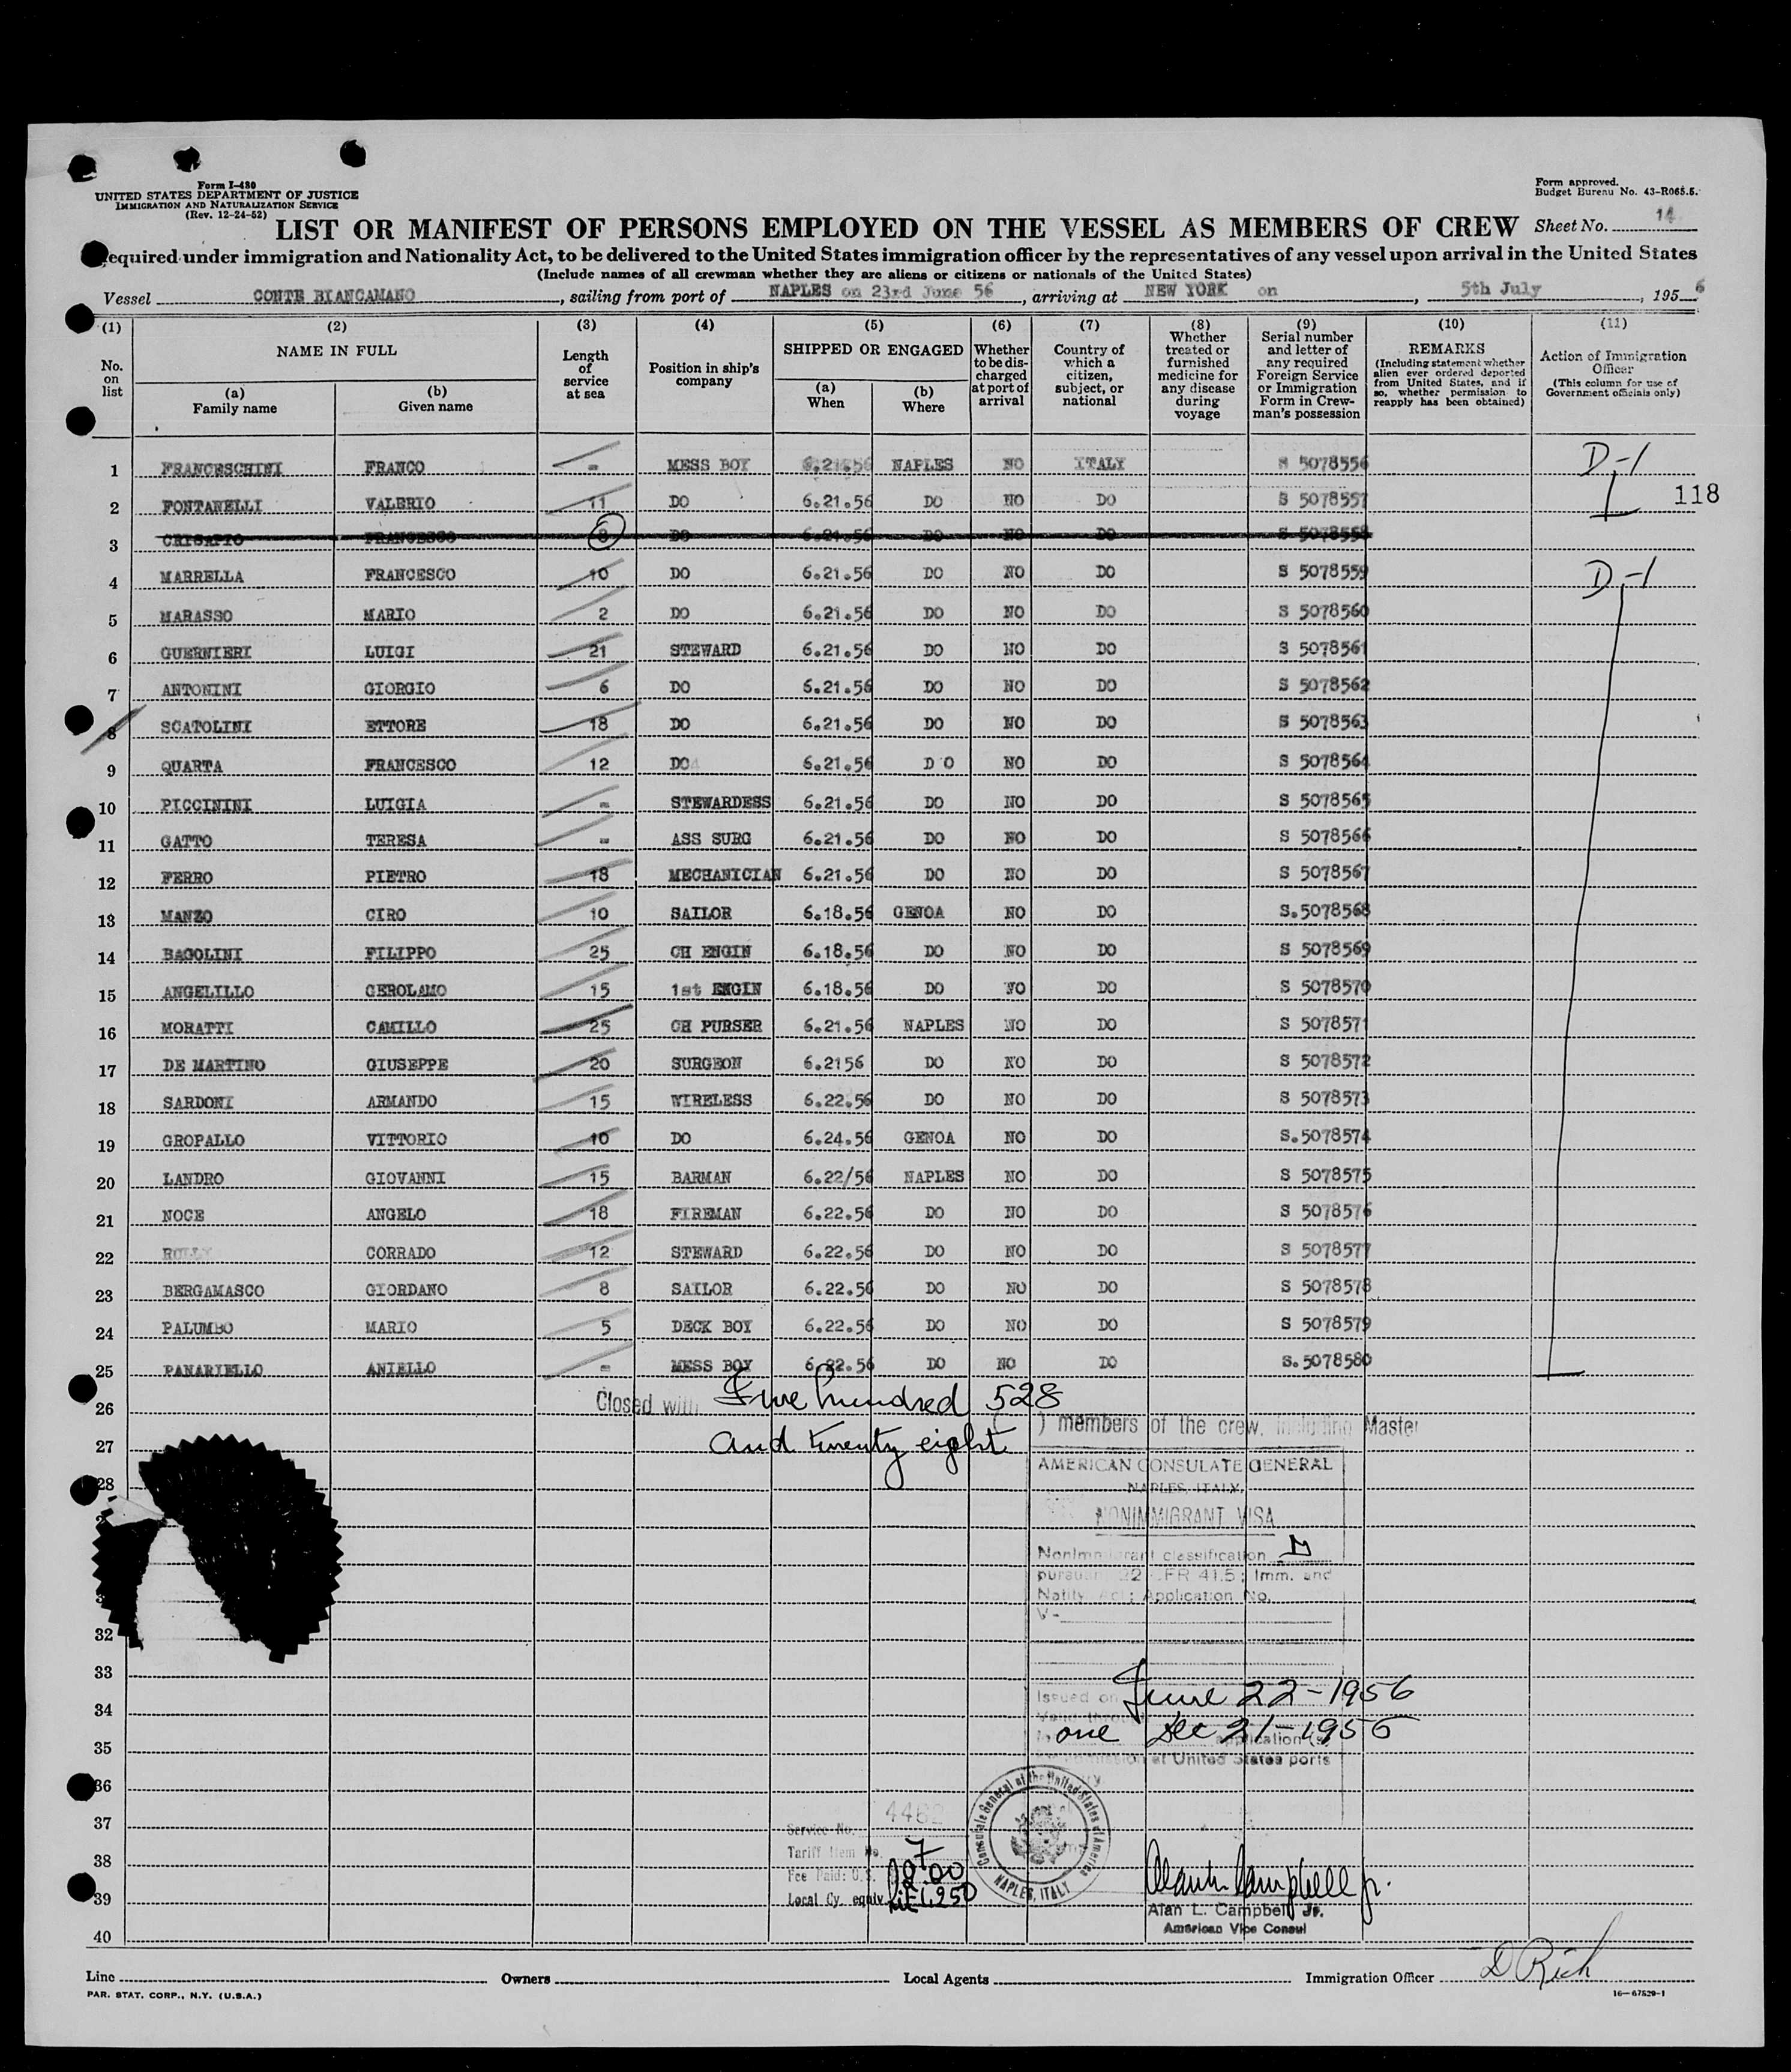 Form I-480
UNITED STATES DEPARTMENT OF JUSTICE
IMMIGRATION AND NATURALIZATION SERVICE
(Rev. 12-24-52)
Form approved.
Budget Bureau No. 43-R065.5.
LIST OR MANIFEST OF PERSONS EMPLOYED ON THE VESSEL AS MEMBERS OF CREW Sheet No. 14
equired under immigration and Nationality Act, to be delivered to the United States immigration officer by the representatives of any vessel upon arrival in the United States
(Include names of all crewman whether they are aliens or citizens or nationals of the United States)
Vessel CONTE BIANCAMANO, sailing from port of NAPLES on 23rd June 56, arriving at NEW YORK on, 5th July, 1956
(1) No. on list
(2) NAME IN FULL
(a) Family name
(b) Given name
(3) Length of service at sea
(4) Position in ship's company
(5) SHIPPED OR ENGAGED
(a) When
(b) Where
(6) Whether to be discharged at port of arrival
(7) Country of which a citizen, subject, or national
(8) Whether treated or furnished medicine for any disease during voyage
(9) Serial number and letter of any required Foreign Service or Immigration Form in Crewman's possession
(10) REMARKS (Including statement whether alien ever ordered deported from United States, and if so, whether permission to reapply has been obtained)
(11) Action of Immigration Officer (This column for use of Government officials only)
1 FRANCESCHINI FRANCO - MESS BOY 6.21.56 NAPLES NO ITALY S 5078556 D-1
2 FONTANELLI VALERIO 11 DO 6.21.56 DO NO DO S 5078557 118
3 CRISAPIO FRANCESCO 8 DO 6.21.56 DO NO DO S 5078558
4 MARRELLA FRANCESCO 10 DO 6.21.56 DO NO DO S 5078559 D-1
5 MARASSO MARIO 2 DO 6.21.56 DO NO DO S 5078560
6 GUERNIERI LUIGI 21 STEWARD 6.21.56 DO NO DO S 5078561
7 ANTONINI GIORGIO 6 DO 6.21.56 DO NO DO S 5078562
8 SCATOLINI ETTORE 18 DO 6.21.56 DO NO DO S 5078563
9 QUARTA FRANCESCO 12 DO 6.21.56 D O NO DO S 5078564
10 PICCININI LUIGIA - STEWARDESS 6.21.56 DO NO DO S 5078565
11 GATTO TERESA - ASS SURG 6.21.56 DO NO DO S 5078566
12 FERRO PIETRO 18 MECHANICIAN 6.21.56 DO NO DO S 5078567
13 MANZO CIRO 10 SAILOR 6.18.56 GENOA NO DO S.5078568
14 BAGOLINI FILIPPO 25 CH ENGIN 6.18.56 DO NO DO S 5078569
15 ANGELILLO GEROLAMO 15 1st ENGIN 6.18.56 DO NO DO S 5078570
16 MORATTI CAMILLO 25 CH PURSER 6.21.56 NAPLES NO DO S 5078571
17 DE MARTINO GIUSEPPE 20 SURGEON 6.2156 DO NO DO S 5078572
18 SARDONI ARMANDO 15 WIRELESS 6.22.56 DO NO DO S 5078573
19 GROPALLO VITTORIO 10 DO 6.24.56 GENOA NO DO S.5078574
20 LANDRO GIOVANNI 15 BARMAN 6.22/56 NAPLES NO DO S 5078575
21 NOCE ANGELO 18 FIREMAN 6.22.56 DO NO DO S 5078576
22 CORRADO 12 STEWARD 6.22.56 DO NO DO S 5078577
23 BERGAMASCO GIORDANO 8 SAILOR 6.22.56 DO NO DO S 5078578
24 PALUMBO MARIO 5 DECK BOY 6.22.56 DO NO DO S 5078579
25 PANARIELLO ANIELLO - MESS BOY 6.22.56 DO NO DO S.5078580
Closed with Five hundred 528
26 ) members of the crew, including Master
27 and twenty eight
AMERICAN CONSULATE GENERAL
28 NAPLES, ITALY
NONIMMIGRANT VISA
Nonimmigrant classification D
pursuant 22 CFR 41.5; Imm. and
Natlty. Act; Application No.
V-
32
33
Issued on June 22-1956
34
one Dec 21-1956
application(s)
35
at United States ports
36
Consulate General of the United States of America
NAPLES, ITALY
37
Service No. 4482
Tariff Item No. 7
38
Fee Paid: U.S.
39 Local Cy. equiv.
Alan L. Campbell Jr.
Alan L. Campbell Jr.
American Vice Consul
40
Line Owners Local Agents Immigration Officer D Rich
PAR. STAT. CORP., N.Y. (U.S.A.)
16-67529-1